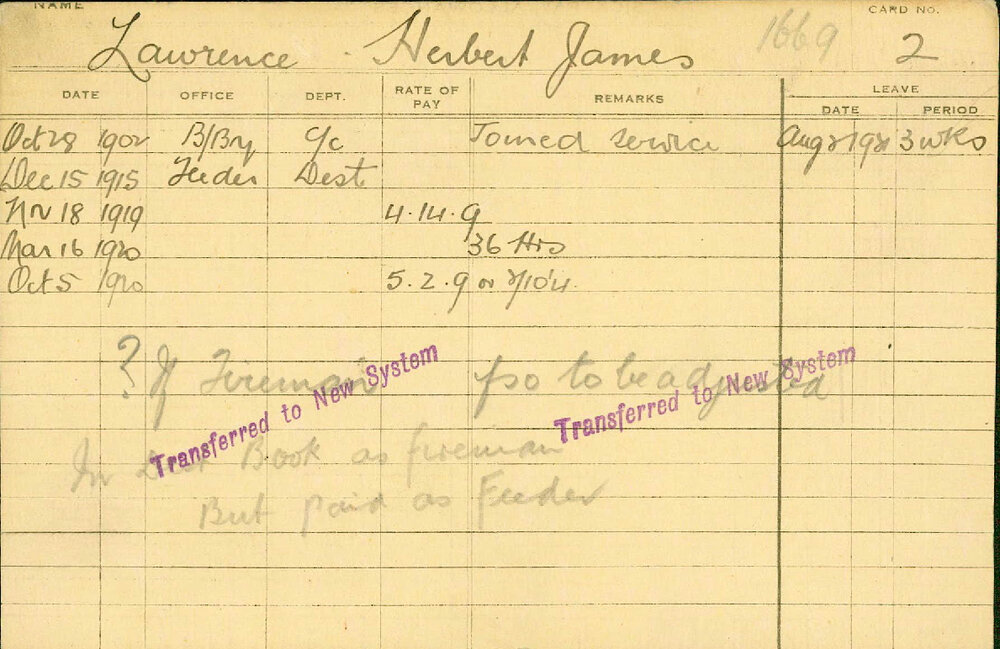 NAME
CARD NO.
Lawrence - Herbert James 1669 2
DATE OFFICE DEPT. RATE OF PAY REMARKS LEAVE
DATE PERIOD
Oct 28 1902 B/Bry C/c Joined service Aug 2 1921 3 wks
Dec 15 1915 Feeder Dest
Nv 18 1919 4.14.9
Mar 16 1920 36 Hrs
Oct 5 1920 5.2.9 or
? If Fireman's to be adjusted
Transferred to New System
Transferred to New System
In Book as fireman
But paid as Feeder